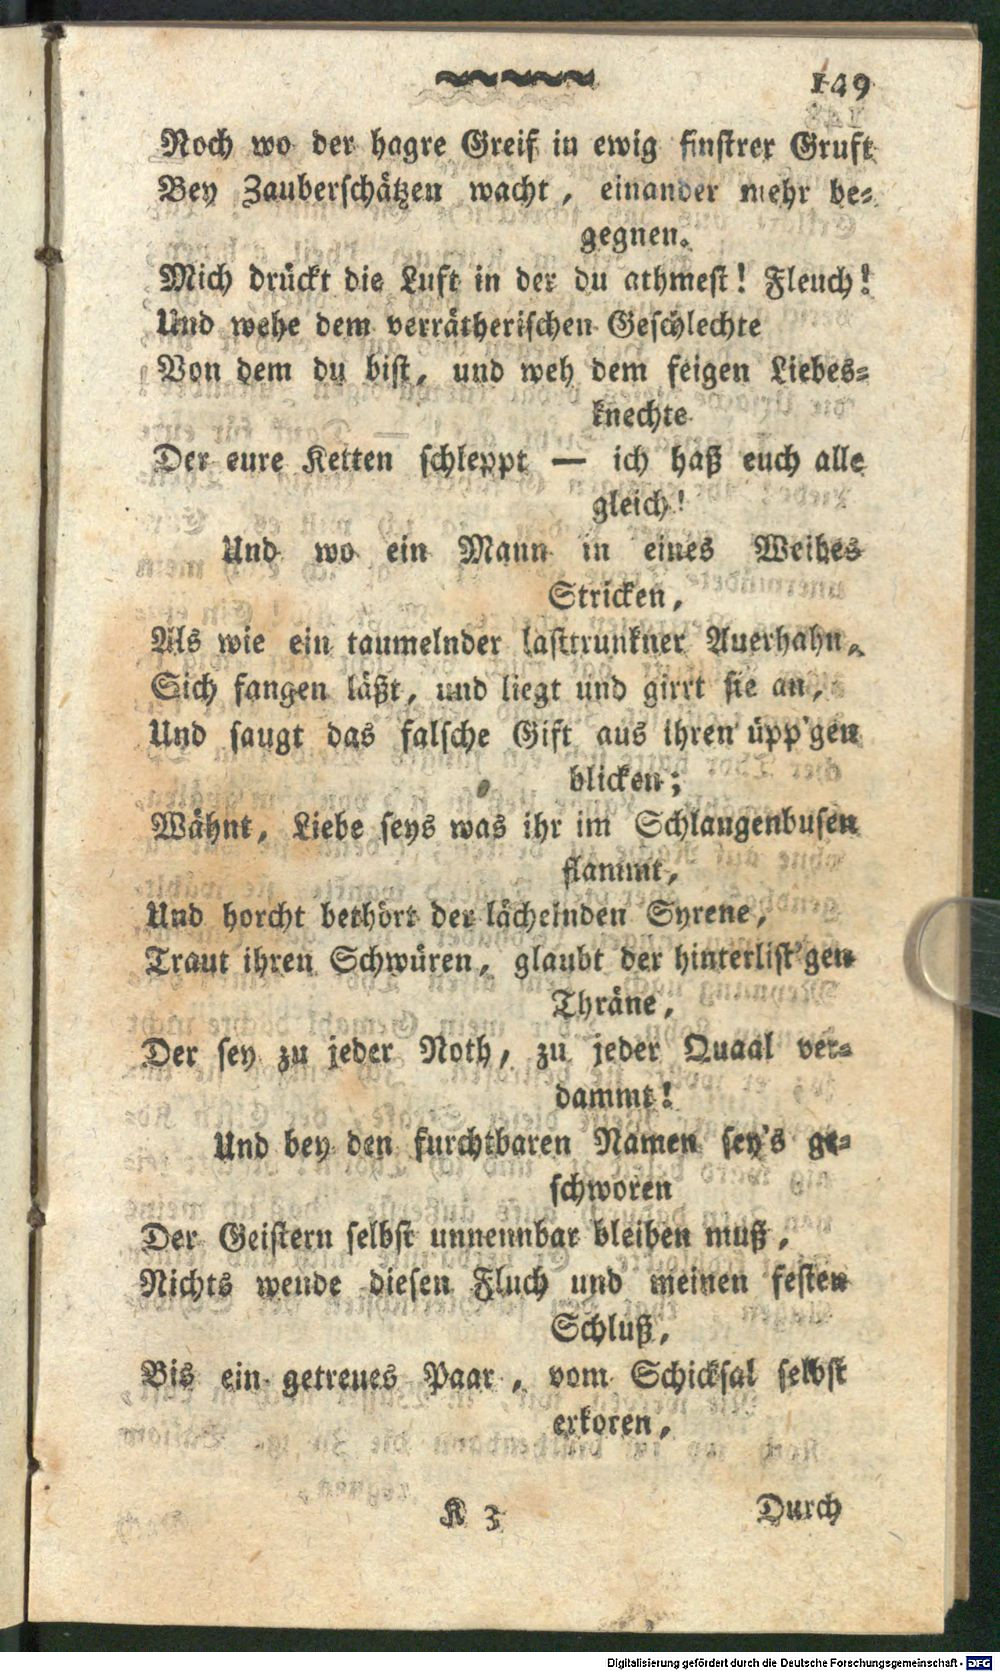 149
Noch wo der hagre Greif in ewig finstrer Gruft
Bey Zauberschätzen wacht, einander mehr be-
gegnen.
Mich drückt die Luft in der du athmest! Fleuch!
Und wehe dem verrätherischen Geschlechte
Von dem du bist, und weh dem feigen Liebes-
knechte
Der eure Ketten schleppt — ich haß euch alle
gleich!
Und wo ein Mann in eines Weibes
Stricken,
Als wie ein taumelnder lusttrunkner Auerhahn,
Sich fangen läßt, und liegt und girrt sie an,
Und saugt das falsche Gift aus ihren üpp'gen
blicken;
Wähnt, Liebe seys was ihr im Schlangenbusen
flammt,
Und horcht bethört der lächelnden Syrene,
Traut ihren Schwüren, glaubt der hinterlist'gen
Thräne,
Der sey zu jeder Noth, zu jeder Quaal ver-
dammt!
Und bey den furchtbaren Namen sey's ge-
schworen
Der Geistern selbst unnennbar bleiben muß,
Nichts wende diesen Fluch und meinen festen
Schluß,
Bis ein getreues Paar, vom Schicksal selbst
erkoren,
K 3 Durch
Digitalisierung gefördert durch die Deutsche Forschungsgemeinschaft - DFG